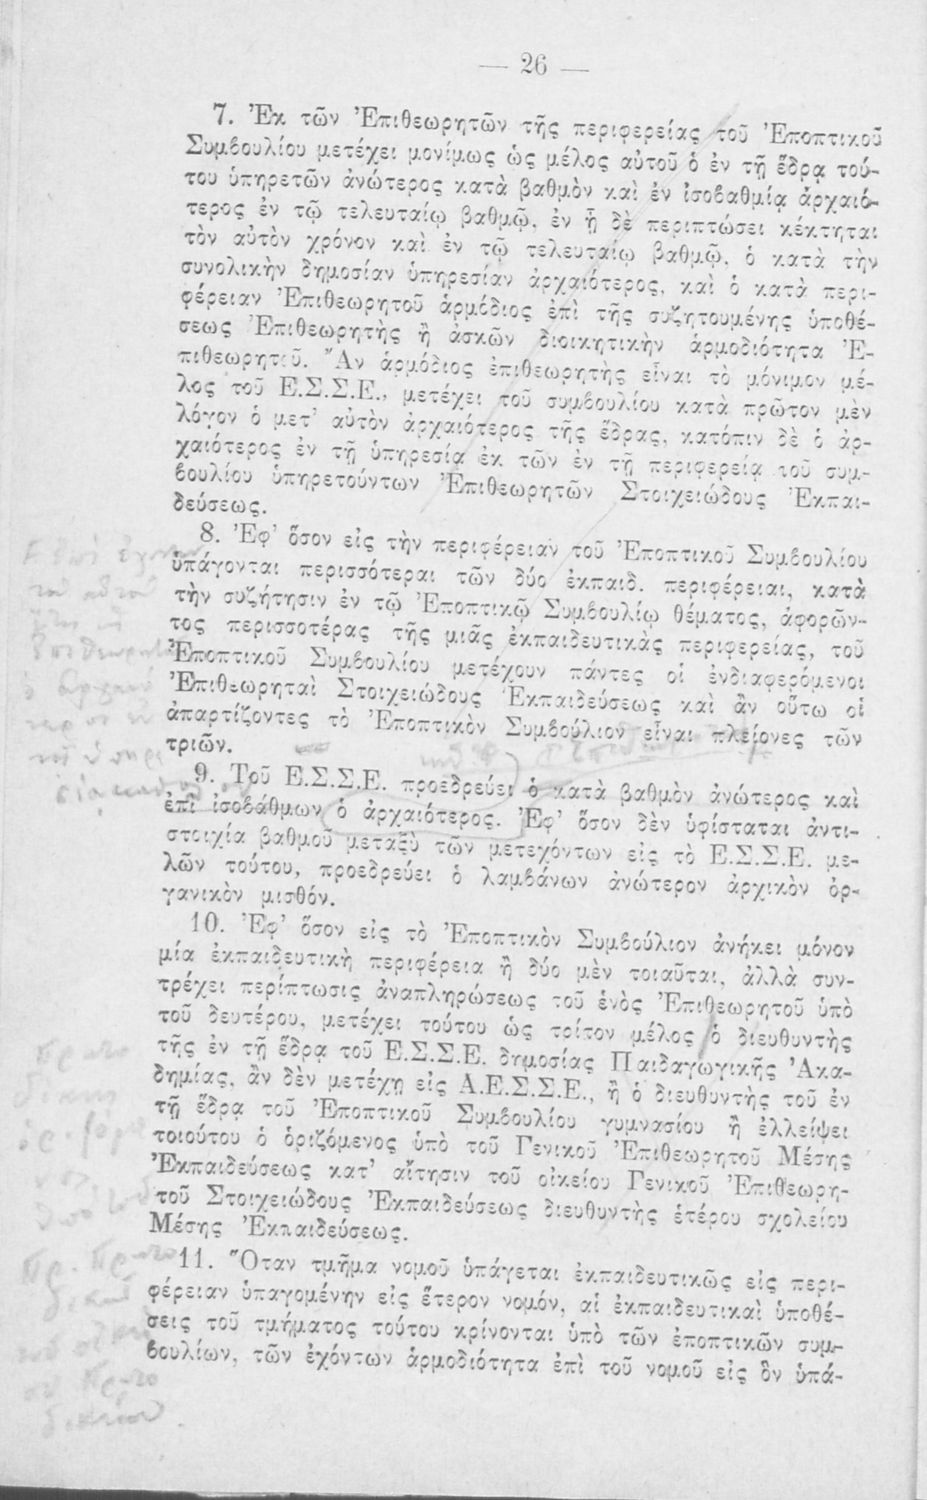 — 26 —
7. Ἐκ τῶν Ἐπιθεωρητῶν τῆς περιφερείας τοῦ Ἐποπτικοῦ
Συμβουλίου μετέχει μονίμως ὡς μέλος αὐτοῦ ὁ ἐν τῇ ἕδρᾳ τού-
του ὑπηρετῶν ἀνώτερος κατὰ βαθμὸν καὶ ἐν ἰσοβαθμίᾳ ἀρχαιό-
τερος ἐν τῷ τελευταίῳ βαθμῷ, ἐν ᾗ δὲ περιπτώσει κέκτηται
τὸν αὐτὸν χρόνον καὶ ἐν τῷ τελευταίῳ βαθμῷ, ὁ κατὰ τὴν
συνολικὴν δημοσίαν ὑπηρεσίαν ἀρχαιότερος, καὶ ὁ κατὰ περι-
φέρειαν Ἐπιθεωρητοῦ ἁρμόδιος ἐπὶ τῆς συζητουμένης ὑποθέ-
σεως Ἐπιθεωρητὴς ἢ ἀσκῶν διοικητικὴν ἁρμοδιότητα Ἐ-
πιθεωρητοῦ. Ἂν ἁρμόδιος ἐπιθεωρητὴς εἶναι τὸ μόνιμον μέ-
λος τοῦ Ε.Σ.Σ.Ε., μετέχει τοῦ συμβουλίου κατὰ πρῶτον μὲν
λόγον ὁ μετ’ αὐτὸν ἀρχαιότερος τῆς ἕδρας, κατόπιν δὲ ὁ ἀρ-
χαιότερος ἐν τῇ ὑπηρεσίᾳ ἐκ τῶν ἐν τῇ περιφερείᾳ τοῦ συμ-
βουλίου ὑπηρετούντων Ἐπιθεωρητῶν Στοιχειώδους Ἐκπαι-
δεύσεως.
8. Ἐφ’ ὅσον εἰς τὴν περιφέρειαν τοῦ Ἐποπτικοῦ Συμβουλίου
ὑπάγονται περισσότεραι τῶν δύο ἐκπαιδ. περιφέρειαι, κατὰ
τὴν συζήτησιν ἐν τῷ Ἐποπτικῷ Συμβουλίῳ θέματος, ἀφορῶν-
τος περισσοτέρας τῆς μιᾶς ἐκπαιδευτικὰς περιφερείας, τοῦ
Ἐποπτικοῦ Συμβουλίου μετέχουν πάντες οἱ ἐνδιαφερόμενοι
Ἐπιθεωρηταὶ Στοιχειώδους Ἐκπαιδεύσεως καὶ ἂν οὕτω οἱ
ἀπαρτίζοντες τὸ Ἐποπτικὸν Συμβούλιον εἶναι πλείονες τῶν
τριῶν.
9. Τοῦ Ε.Σ.Σ.Ε. προεδρεύει ὁ κατὰ βαθμὸν ἀνώτερος καὶ
ἐπὶ ἰσοβάθμων ὁ ἀρχαιότερος. Ἐφ’ ὅσον δὲν ὑφίσταται ἀντι-
στοιχία βαθμοῦ μεταξὺ τῶν μετεχόντων εἰς τὸ Ε.Σ.Σ.Ε. με-
λῶν τούτου, προεδρεύει ὁ λαμβάνων ἀνώτερον ἀρχικὸν ὀρ-
γανικὸν μισθόν.
10. Ἐφ’ ὅσον εἰς τὸ Ἐποπτικὸν Συμβούλιον ἀνήκει μόνον
μία ἐκπαιδευτικὴ περιφέρεια ἢ δύο μὲν τοιαῦται, ἀλλὰ συν-
τρέχει περίπτωσις ἀναπληρώσεως τοῦ ἑνὸς Ἐπιθεωρητοῦ ὑπὸ
τοῦ δευτέρου, μετέχει τούτου ὡς τρίτον μέλος ὁ διευθυντὴς
τῆς ἐν τῇ ἕδρᾳ τοῦ Ε.Σ.Σ.Ε. δημοσίας Παιδαγωγικῆς Ἀκα-
δημίας, ἂν δὲν μετέχῃ εἰς Α.Ε.Σ.Σ.Ε., ἢ ὁ διευθυντὴς τοῦ ἐν
τῇ ἕδρᾳ τοῦ Ἐποπτικοῦ Συμβουλίου γυμνασίου ἢ ἐλλείψει
τοιούτου ὁ ὁριζόμενος ὑπὸ τοῦ Γενικοῦ Ἐπιθεωρητοῦ Μέσης
Ἐκπαιδεύσεως κατ’ αἴτησιν τοῦ οἰκείου Γενικοῦ Ἐπιθεωρη-
τοῦ Στοιχειώδους Ἐκπαιδεύσεως διευθυντὴς ἑτέρου σχολείου
Μέσης Ἐκπαιδεύσεως.
11. Ὅταν τμῆμα νομοῦ ὑπάγεται ἐκπαιδευτικῶς εἰς περι-
φέρειαν ὑπαγομένην εἰς ἕτερον νομόν, αἱ ἐκπαιδευτικαὶ ὑποθέ-
σεις τοῦ τμήματος τούτου κρίνονται ὑπὸ τῶν ἐποπτικῶν συμ-
βουλίων, τῶν ἐχόντων ἁρμοδιότητα ἐπὶ τοῦ νομοῦ εἰς ὃν ὑπά-